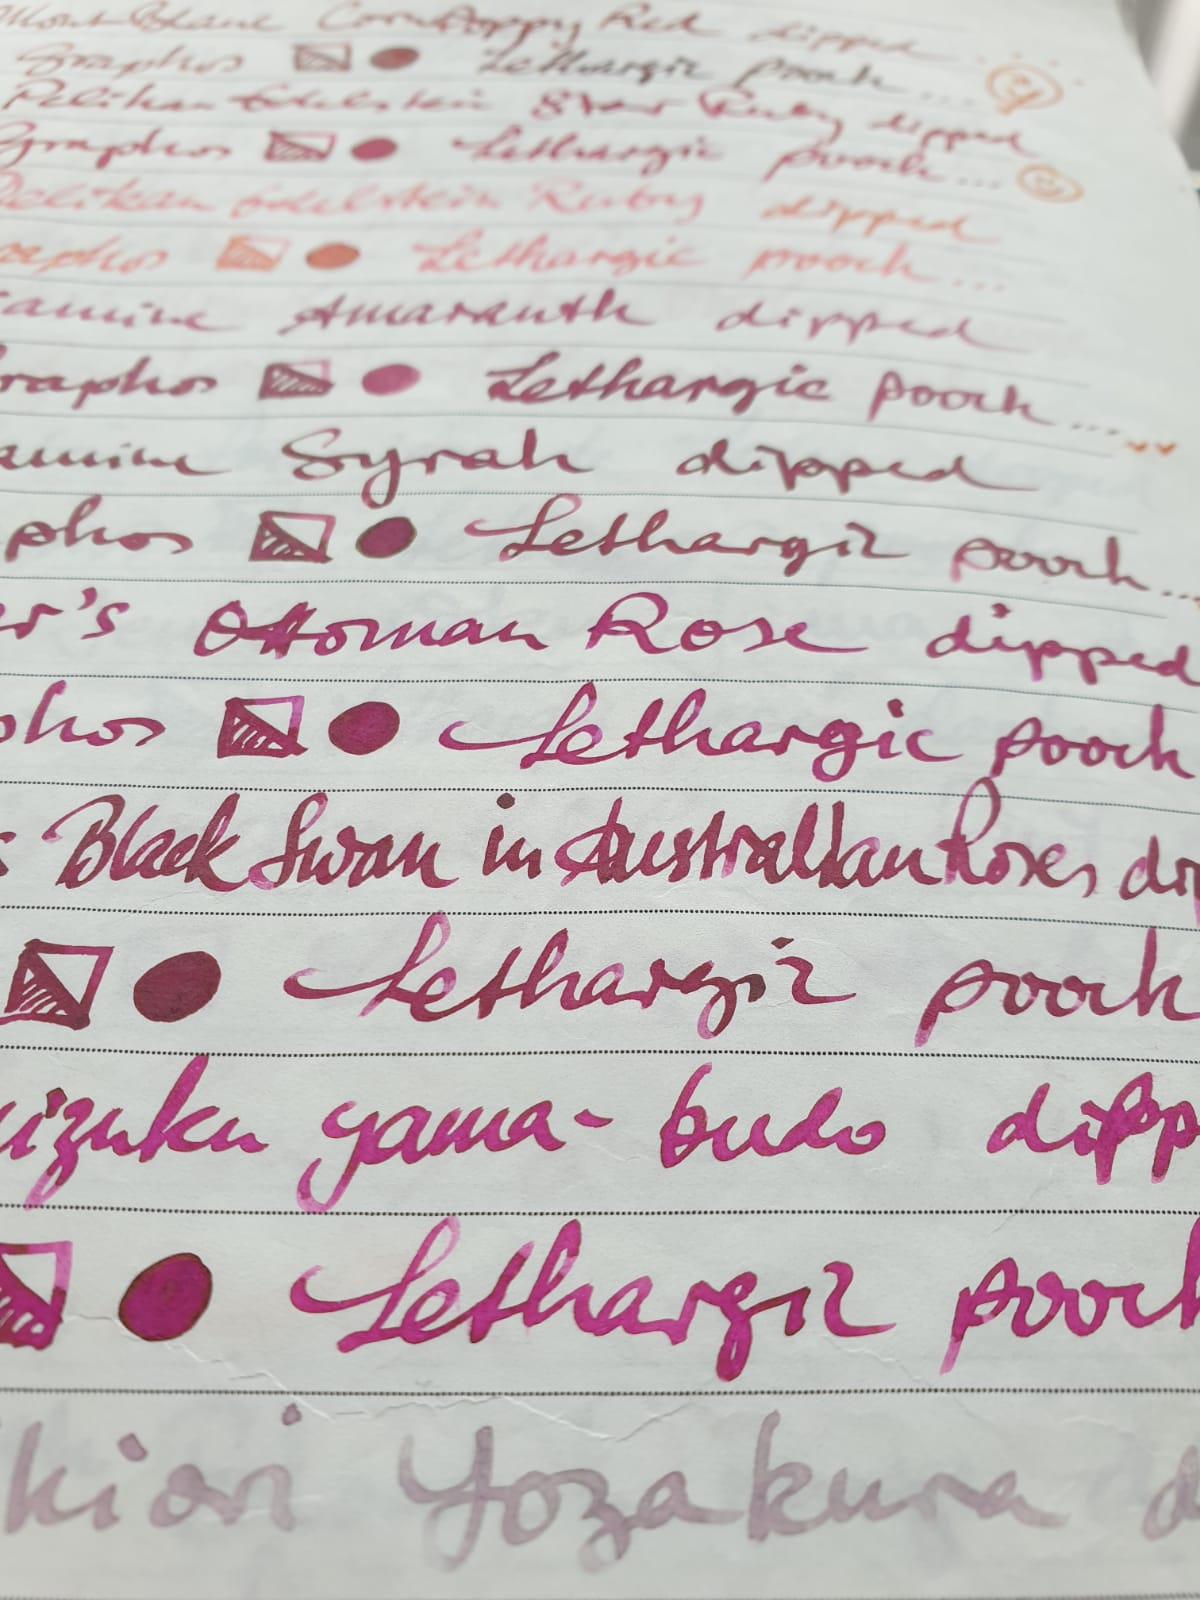 MontBlanc Corn Poppy Red dipped
Graphos Lethargic pooch...
Pelikan Edelstein Star Ruby dipped
Graphos Lethargic pooch...
Pelikan Edelstein Ruby dipped
raphos Lethargic pooch...
iamine Amaranth dipped
raphos Lethargic pooch...
amine Syrah dipped
phos Lethargic pooch...
er's Ottoman Rose dipped
phos Lethargic pooch
s Black Swan in Australian Roses dip
Lethargic pooch
uizuku yama-budo dipp
Lethargic pooch
kiori Yozakura d